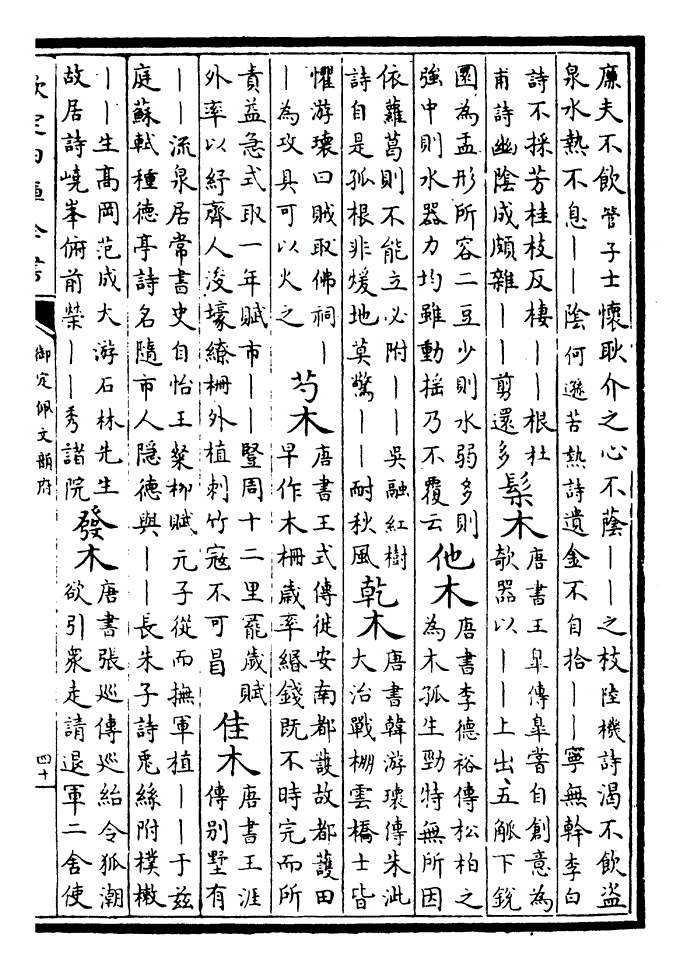 廉夫不飲管子士懷耿介之心不蔭丨丨之枝陸機詩渴不飲盗
泉水熱不息丨丨陰何遜苦熱詩遺金不自拾丨丨寧無幹李白
詩不採芳桂枝反棲丨丨根杜
甫詩幽陰成頗雜丨丨剪還多
髹木
唐書王臯傳臯嘗自創意為
欹器以丨丨上出五觚下銳
圓為盂形所容二豆少則水弱多則
強中則水器力均雖動搖乃不覆云
他木
唐書李德裕傳松柏之
為木孤生勁特無所因
依蘿葛則不能立必附丨丨吳融紅樹
詩自是孤根非煖地莫驚丨丨耐秋風
乾木
唐書韓游瓌傳朱泚
大治戰棚雲橋士皆
懼游瓌曰賊取佛祠丨
丨為攻具可以火之
芍木
唐書王式傳徙安南都護故都護田
早作木柵歲率緡錢既不時完而所
責益急式取一年賦市丨丨豎周十二里罷歲賦
外率以紓齊人浚壕繚柵外植刺竹寇不可冒
佳木
唐書王涯
傳别墅有
丨丨流泉居常書史自怡王粲柳賦元子從而撫軍植丨丨于兹
庭蘇軾種德亭詩名隨市人隱德與丨丨長朱子詩兎絲附樸樕
丨丨生髙岡范成大游石林先生
故居詩嶢峯俯前榮丨丨秀諸院
發木
唐書張巡傳巡紿令狐潮
欲引衆走請退軍二舍使
欽定四庫全書
御定佩文韻府
四十